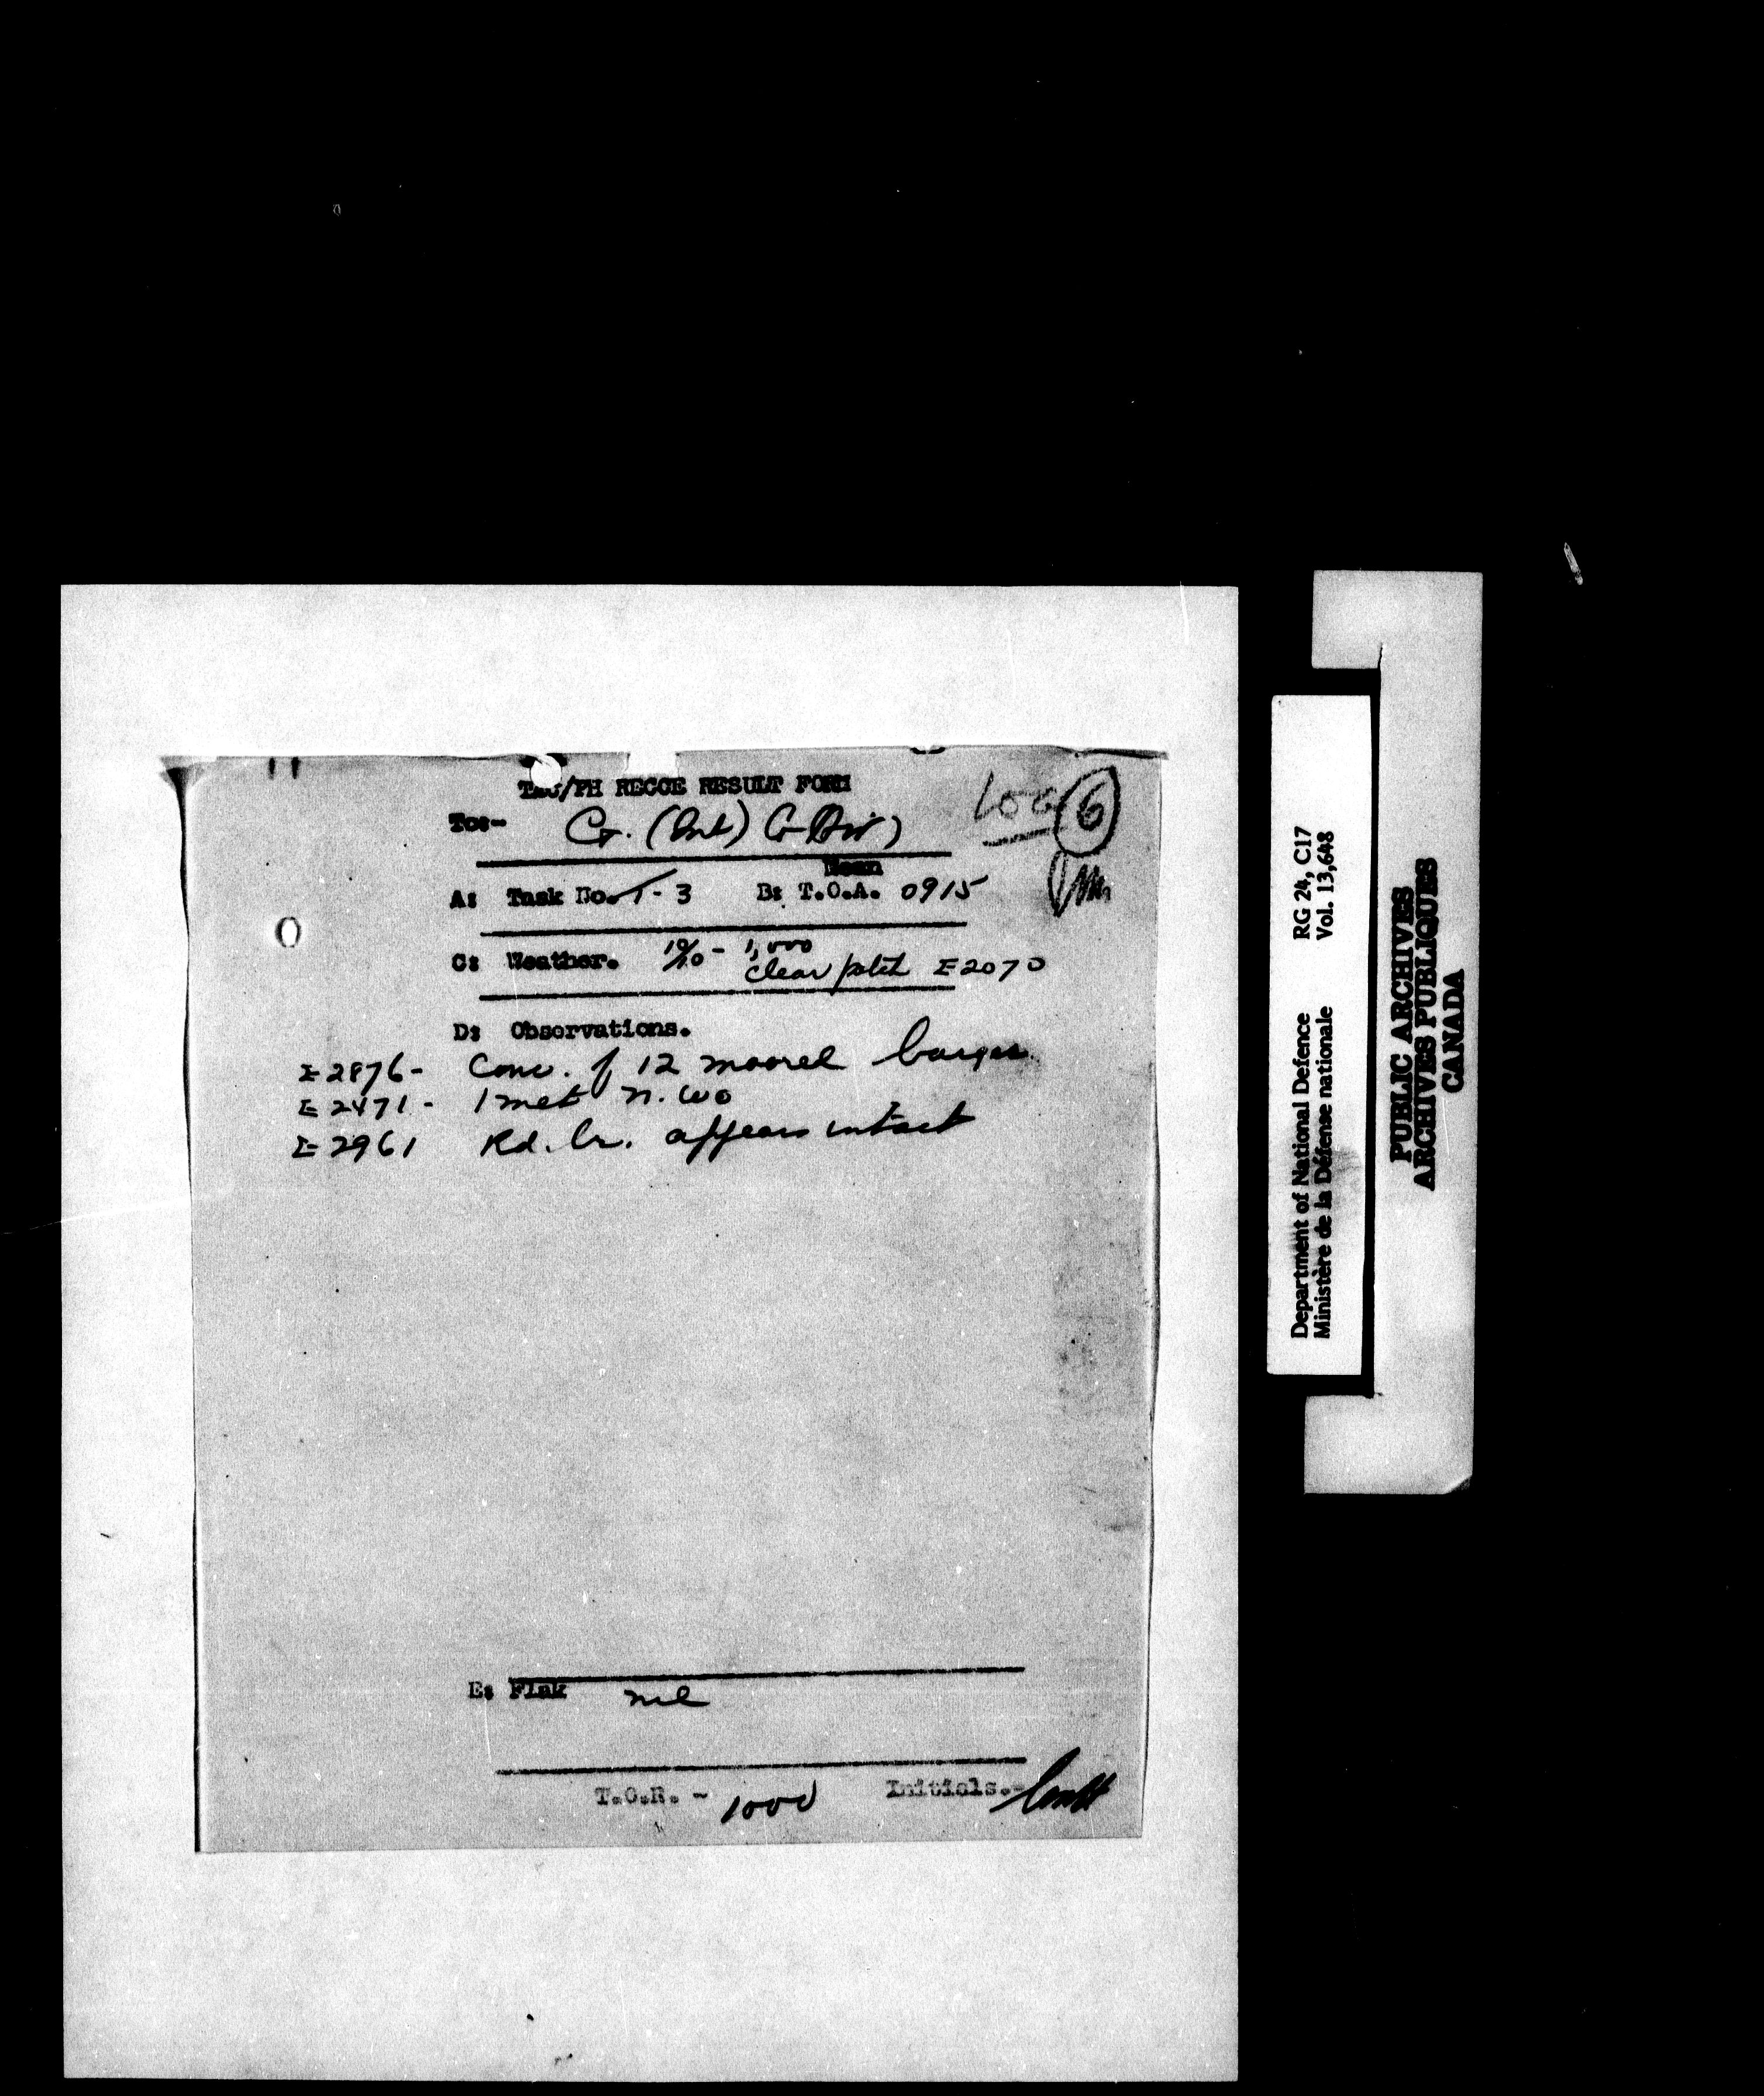 TAC/PH RECCE RESULT FORM
To:- G. (Int) G (Air)
Log 6
Mean
A: Task No. T-3 B: T.O.A. 0915
C: Weather. 10/10 - 1,000
clear patch E2070
D: Observations.
E2876 - Conc. of 12 moored barges
E2471 - 1 met n. wo
E2961 Rd. br. appears intact
E: Flak nil
T.O.R. - 1000 Initials.-
Department of National Defence RG 24, C17
Ministère de la Défense nationale Vol. 13,648
PUBLIC ARCHIVES
ARCHIVES PUBLIQUES
CANADA